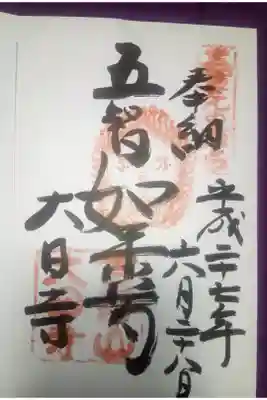 奉納
平成二十七年
六月二十八日
五智如来
大日寺